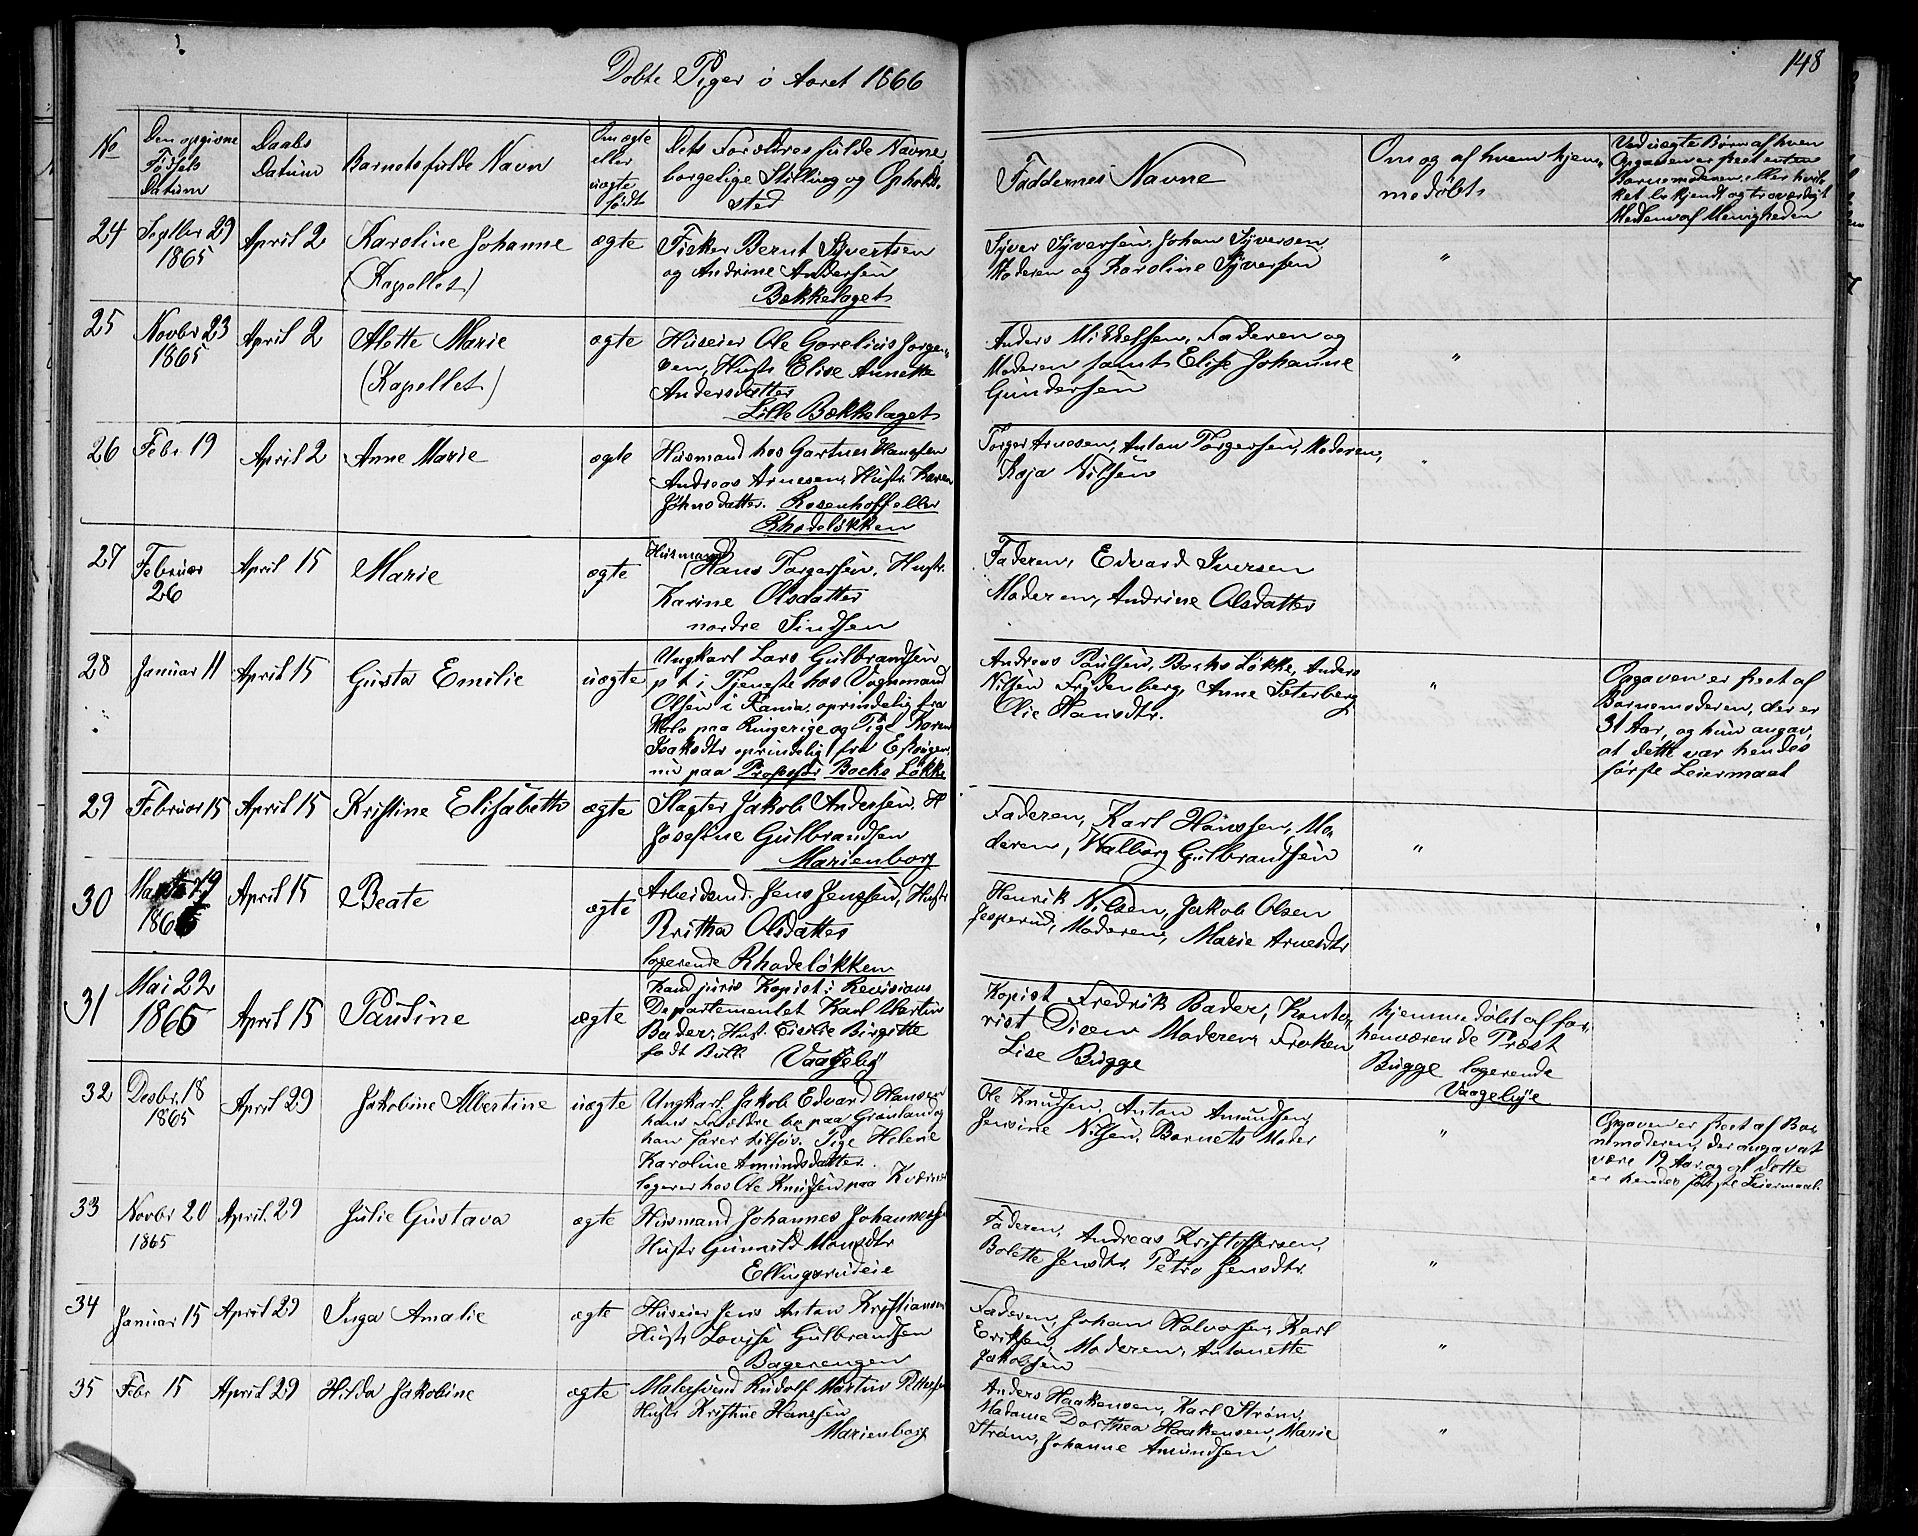 Døbte Piger i Aaret 1866
148
No
Den opgivne Fødsels Datum
Daabs Datum
Barnets fulde Navn
Om ægte eller uægte født
Dets Forældres fulde Navne, borgelige Stilling og Opholdssted
Faddernes Navne
Om og af hvem hjemmedøbt
Ved uægte Børn af hvem Opgaven er skeet enten Barnemoderen eller hvilket bekjendt og troværdigt Medlem af Menigheden
24
Septbr 29
1865
April 2
Karoline Johanne
(Kapellet)
ægte
Fisker Bernt Syvertsen
og Andrine Andersen
Bekkelaget
Syver Syversen, Johan Syversen
Moderen og Karoline Syversen
"
25
Novbr 23
1865
April 2
Alette Marie
(Kapellet)
ægte
Huseier Ole Gorelius Jorgen-
sen, Hustr Elise Annette
Andersdatter
Lille Bækkelaget
Anders Mikkelsen, Faderen og
Moderen samt Elise Johanne
Gundersen
"
26
Febr 19
April 2
Anne Marie
ægte
Husmand hos Gartner Hanssen
Andreas Arnesen, Hustr. Karen
Johnsdatter. Rosenhoff eller
Rhodeløkken
Torger Arnesen, Anton Torgersen, Moderen,
Kaja Nilsen
"
27
Februar
26
April 15
Marie
ægte
Husmand
Hans Torgersen, Hustr.
Karine Olsdatter
nordre Sindsen
Faderen, Edvard Iversen
Moderen, Andrine Olsdatter
28
Januar 11
April 15
Gusta Emilie
uægte
Ungkarl Lars Gulbrandsen
p t i Tjeneste hos Vognmand
Olsen i Kania. oprindelig fra
Hole paa Ringerige og Pige Karen
Isaksdtr oprindelig fra
nu paa Professor Boeks Løkke
Andreas Paulsen, Boeks Løkke, Anders
Nilsen Frydenberg, Anne Seterberg
Olie Hansdtr.
"
Opgaven er skeet af
Barnemoderen, der er
31 Aar, og hun angav,
at dette var hendes
første Leiermaal
29
Februar 15
April 15
Kristine Elisabeth
ægte
Slagter Jakob Andersen, H
Josefine Gulbrandsen
Marienborg
Faderen, Karl Hanssen, Mo-
deren, Walborg Gulbrandsen
"
30
19
186
April 15
Beate
ægte
Arbeidsmd. Jens Jenssen, Hustr
Kritha Olsdatter
logerende Rhodeløkken
Henrik Nilsen, Jakob Olsen
Jesperud, Moderen, Marie Arnesdtr
31
Mai 22
1865
April 15
Pauline
ægte
Kand juris Kopist i Revisions
Departementet Karl Martin
Bader, Hust. Eisilie Birgitte
født Bull Vaagebÿ
Kopist Fredrik Bader, Konto-
rist Moderen, Frøken
Lise Bugge
hjemmedøbt af for-
henværende Præst
Bugge logerende
Vaagebye
32
Desbr. 18
1865
April 29
Jakobine Albertine
uægte
Ungkarl Jakob Edvard Hansen
hans Forældre bo paa Grønland og
han farer tilsøs. Pige Helene
Karoline Amundsdatter.
logerer hos Ole Knudsen paa
Ole Knudsen, Anton Amundsen,
Jensine Nilsen, Barnets Moder
"
Opgaven er skeet af Bar-
nemoderen, der angav at
være 19 Aar, og at dette
er hendes første Leiermaal.
33
Novbr 20
1865
April. 29
Julie Gustava
ægte
Husmand Johannes Johannessen
Hustr Gunnild Monsdtr
Ellingsrudeie
Faderen, Andreas Kristoffersen,
Bolette Jensdtr. Petra Jensdtr.
"
34
Januar 15
April 29
Inga Amalie
ægte
Huseier Jens Anton Kristiansen
Hustr Lovise Gulbrandsen
Bagerengen
Faderen, Johan Halvorsen, Karl
Eriksen, Moderen, Antonette
Jakobsen
"
35
Febr 15
April 29
Hilda Jakobine
ægte
Malersvend Rudolf Martin Pettersen
Hustr Kristine Hanssen
Marienborg
Anders Haakensen, Karl Strøm,
Madame Dorthea Haakensen, Marie
Strøm, Johanne Amundsen
"